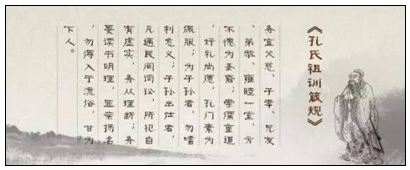 《孔氏祖训箴规》
务宜父慈、子孝、兄友
、弟恭,雍睦一堂,方
不愧为圣裔;崇儒重道
,好礼尚德,孔门素为
佩服;为子孙者,勿嗜
利忘义;子孙出仕者,
凡遇民间词讼,所犯自
有虚实,务从理断;务
要读书明理,显亲扬名
,勿得入于流俗,甘为
下人。